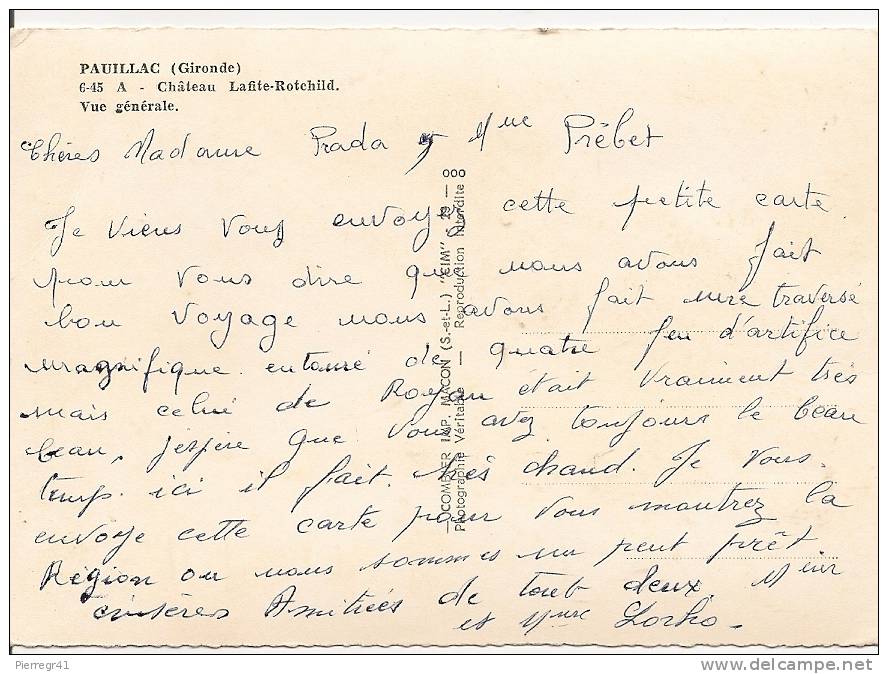 PAUILLAC (Gironde)
6-45 A - Château Lafite-Rotchild.
Vue générale.
Chères Madame Prada et Mme Prêbet
Je viens vous envoyer cette petite carte
pour vous dire que nous avons fait
bon voyage nous avons fait une traversé
magnifique entouré de quatre feu d'artifice
mais celui de Royan était vraiment très
beau, j'espère que vous avez toujours le beau
temps. ici il fait très chaud. Je vous
envoye cette carte pour vous montrez la
Région ou nous sommes un peut prêt
sinsères Amitiées de tout deux, Meur
et Mme Lorho -
COMBIER IMP. MACON (S.-et-L.) "CIM" S 29 — 000
Photographie Véritable — Reproduction Interdite
Pierregr41
www.delcampe.net